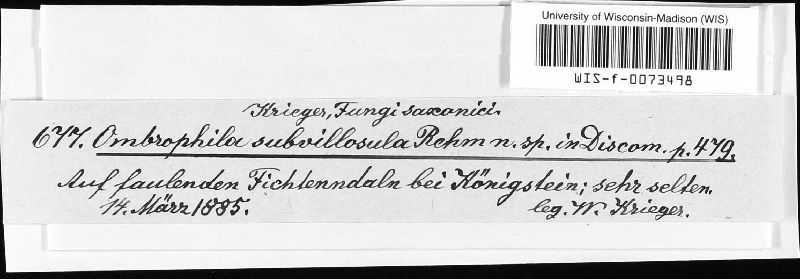 University of Wisconsin-Madison (WIS)
WIS-f-0073498
Krieger, Fungi saxonici.
677. Ombrophila subvillosula Rehm n. sp. in Discom. p. 479.
Auf faulenden Fichtenndaln bei Königstein; sehr selten.
14. März 1885. leg. W. Krieger.